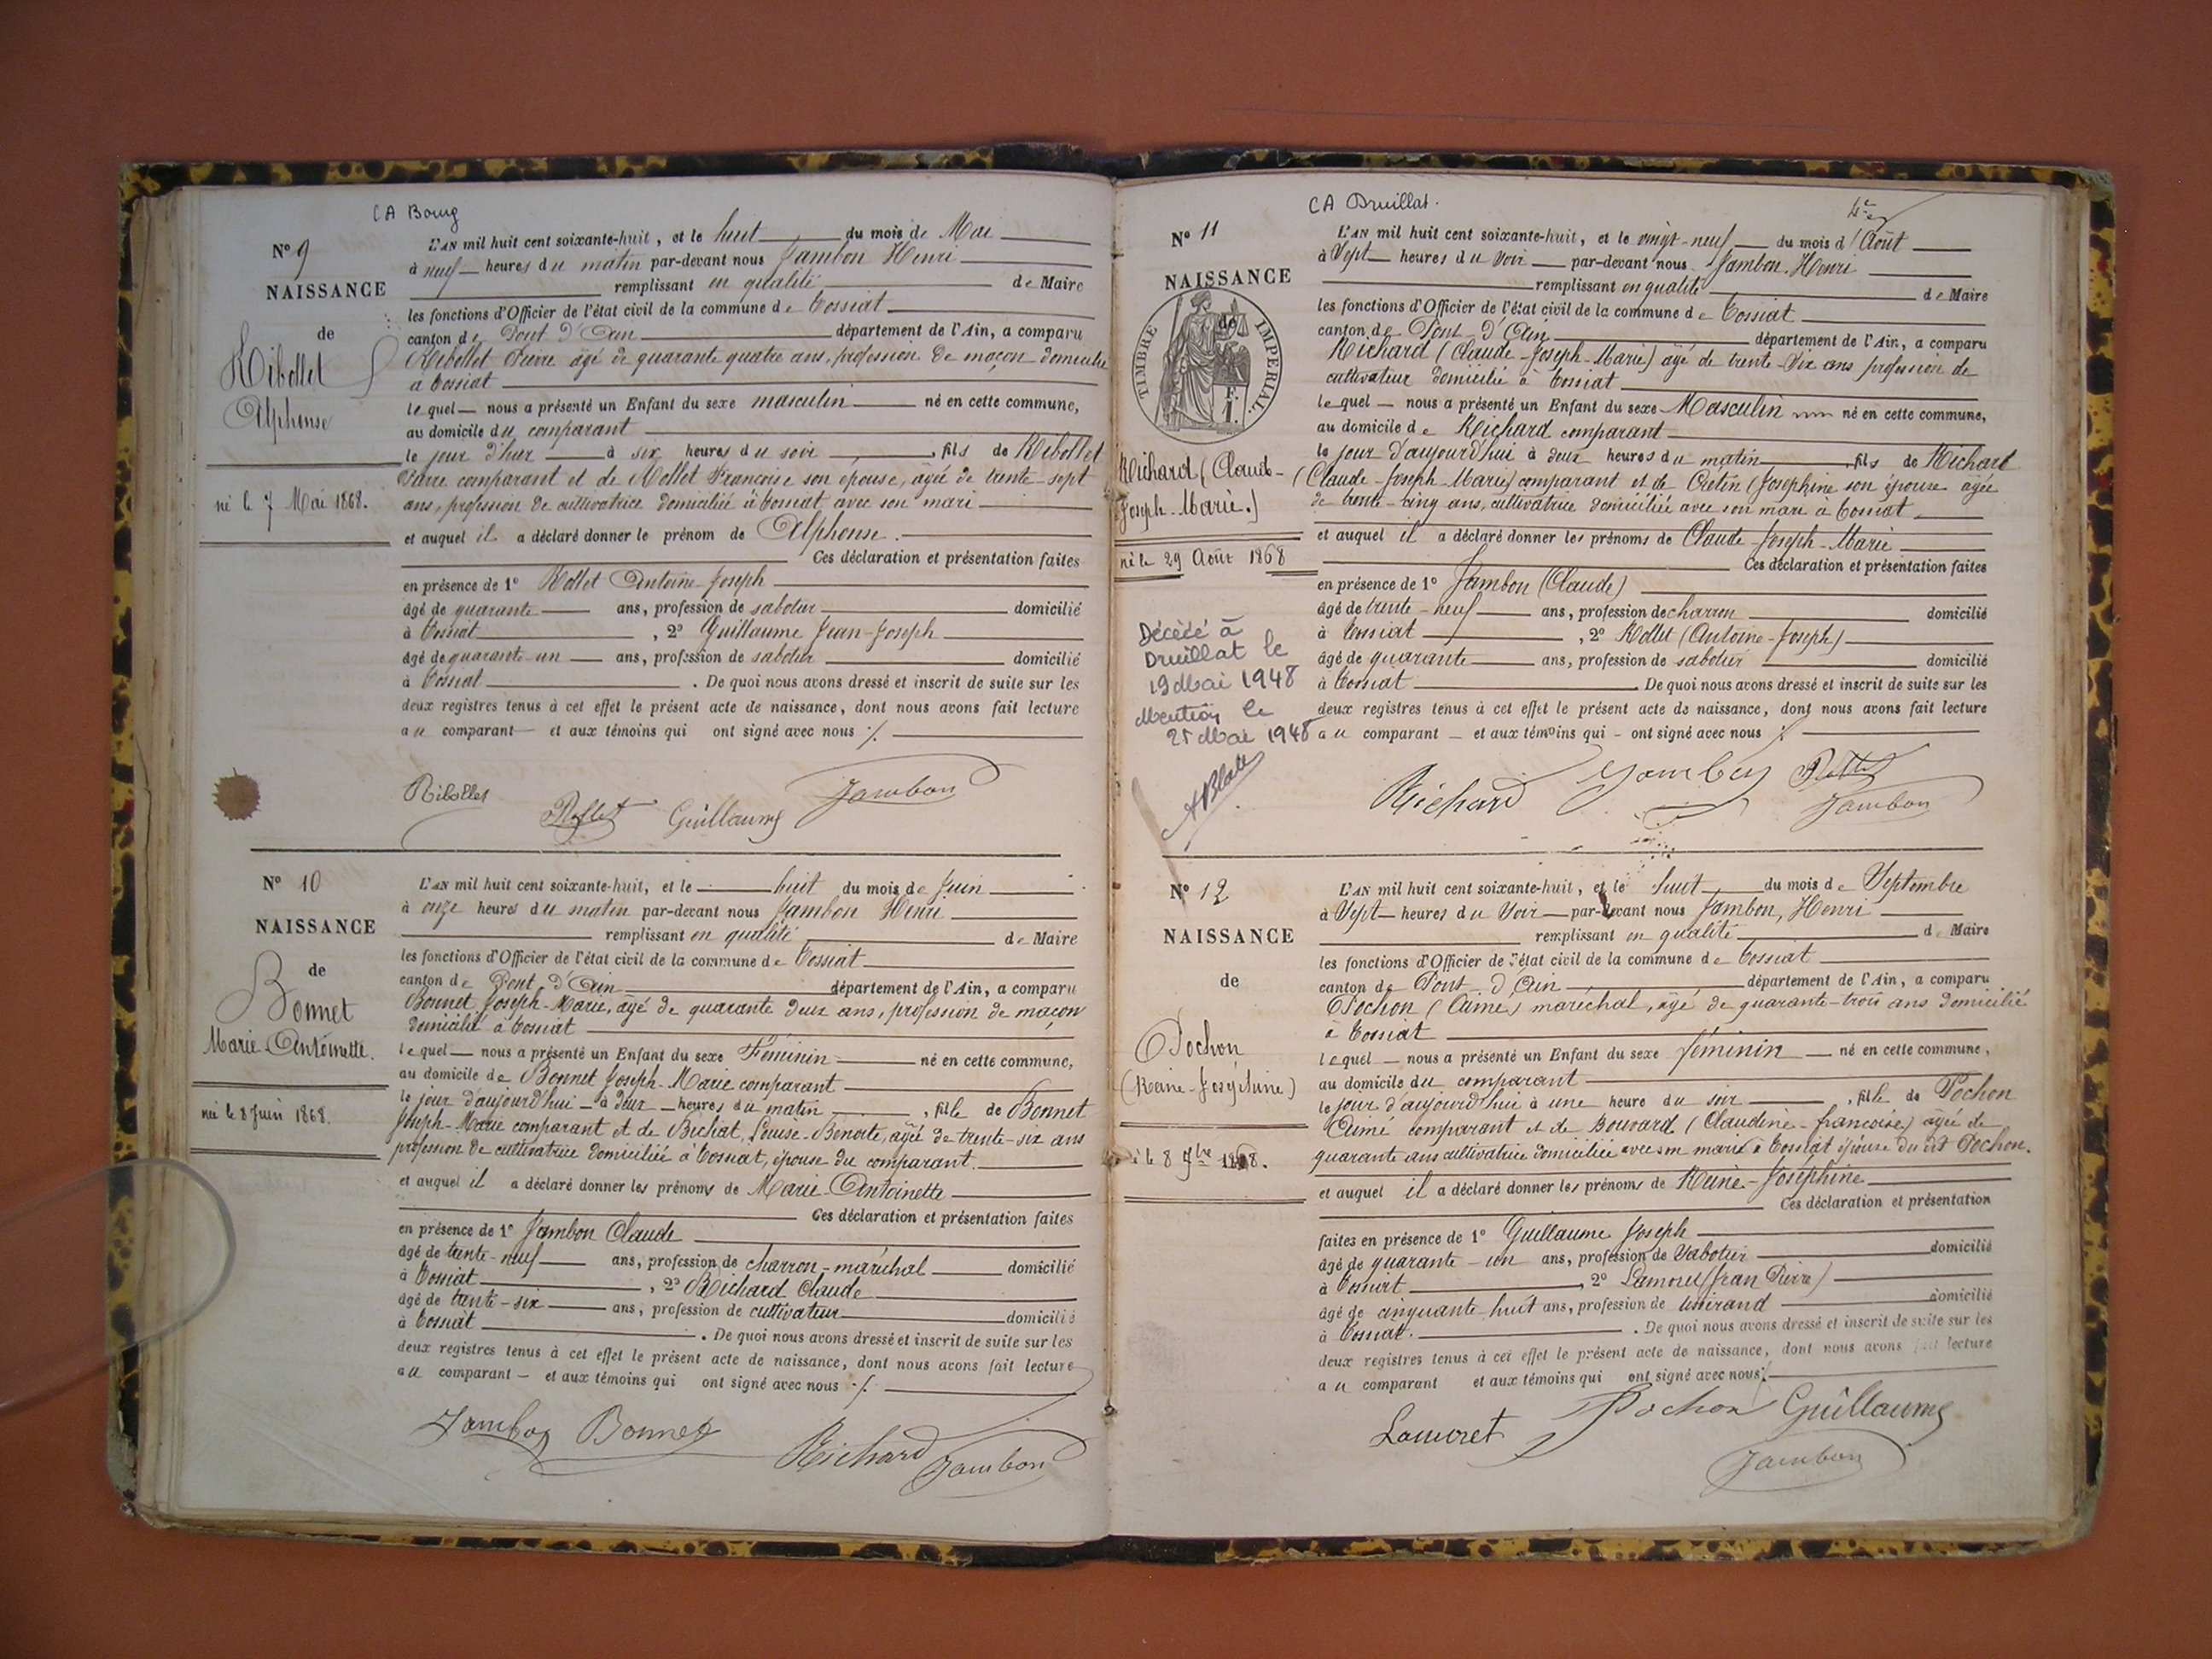 CA Bourg
N° 9
NAISSANCE
de
Ribollet
Alphonse
né le 7 Mai 1868.
L'AN mil huit cent soixante-huit, et le huit du mois de Mai
à neuf heures du matin par-devant nous Jambon Henri
remplissant en qualité de Maire
les fonctions d'Officier de l'état civil de la commune de Tossiat
canton de Pont d'Ain département de l'Ain, a comparu
Ribollet Pierre âgé de quarante quatre ans, profession de maçon domicilié
à Tossiat
lequel nous a présenté un Enfant du sexe masculin né en cette commune,
au domicile du comparant
le jour d'hier à six heures du soir, fils de Ribollet
Pierre comparant et de Mollet Françoise son épouse, agée de trente-sept
ans, profession de cultivatrice domiciliée à Tossiat avec son mari
et auquel il a déclaré donner le prénom de Alphonse.
Ces déclaration et présentation faites
en présence de 1° Rollet Antoine Joseph
âgé de quarante ans, profession de sabotier domicilié
à Tossiat, 2° Guillaume Jean-Joseph
âgé de quarante-un ans, profession de sabotier domicilié
à Tossiat. De quoi nous avons dressé et inscrit de suite sur les
deux registres tenus à cet effet le présent acte de naissance, dont nous avons fait lecture
au comparant et aux témoins qui ont signé avec nous ./.
Ribollet Rollet Guillaume Jambon
N° 10
NAISSANCE
de
Bonnet
Marie-Antoinette.
née le 8 Juin 1868.
L'AN mil huit cent soixante-huit, et le huit du mois de Juin
à onze heures du matin par-devant nous Jambon Henri
remplissant en qualité de Maire
les fonctions d'Officier de l'état civil de la commune de Tossiat
canton de Pont d'Ain département de l'Ain, a comparu
Bonnet Joseph-Marie, agé de quarante deux ans, profession de maçon
domicilié à Tossiat
lequel nous a présenté un Enfant du sexe Féminin né en cette commune,
au domicile de Bonnet Joseph-Marie comparant
le jour d'aujourd'hui à deux heures du matin, fille de Bonnet
Joseph-Marie comparant et de Bichat, Louise-Benoite, agée de trente-six ans
profession de cultivatrice domiciliée à Tossiat, épouse du comparant.
et auquel il a déclaré donner les prénoms de Marie-Antoinette
Ces déclaration et présentation faites
en présence de 1° Jambon Claude
âgé de trente-neuf ans, profession de charron-maréchal domicilié
à Tossiat, 2° Richard Claude
âgé de trente-six ans, profession de cultivateur domicilié
à Tossiat. De quoi nous avons dressé et inscrit de suite sur les
deux registres tenus à cet effet le présent acte de naissance, dont nous avons fait lecture
au comparant et aux témoins qui ont signé avec nous ./.
Jambon Bonnet Richard Jambon
CA Druillat.
N° 11
NAISSANCE
de
TIMBRE IMPERIAL
Richard (Claude-
Joseph-Marie.)
né le 29 Août 1868
Décédé à
Druillat le
19 Mai 1948
Mention le
25 Mai 1948
L'AN mil huit cent soixante-huit, et le vingt-neuf du mois d'Août
à Sept heures du soir par-devant nous Jambon, Henri
remplissant en qualité de Maire
les fonctions d'Officier de l'état civil de la commune de Tossiat
canton de Pont d'Ain département de l'Ain, a comparu
Richard (Claude-Joseph-Marie) âgé de trente-six ans profession de
cultivateur domicilié à Tossiat
lequel nous a présenté un Enfant du sexe Masculin né en cette commune,
au domicile de Richard comparant
le jour d'aujourd'hui à deux heures du matin, fils de Richard
(Claude-Joseph-Marie) comparant et de Crétin (Josephine son épouse agée
de trente-cinq ans, cultivatrice domiciliée avec son mari à Tossiat
et auquel il a déclaré donner les prénoms de Claude-Joseph-Marie
Ces déclaration et présentation faites
en présence de 1° Jambon (Claude)
âgé de trente-neuf ans, profession de charron domicilié
à Tossiat, 2° Rollet (Antoine-Joseph)
âgé de quarante ans, profession de sabotier domicilié
à Tossiat. De quoi nous avons dressé et inscrit de suite sur les
deux registres tenus à cet effet le présent acte de naissance, dont nous avons fait lecture
au comparant et aux témoins qui ont signé avec nous ./.
Richard Jambon Rollet
Jambon
N° 12
NAISSANCE
de
Pochon
(Reine-Joséphine)
né le 8 7bre 1868.
L'AN mil huit cent soixante-huit, et le huit du mois de Septembre
à Sept heures du soir par-devant nous Jambon, Henri
remplissant en qualité de Maire
les fonctions d'Officier de l'état civil de la commune de Tossiat
canton de Pont d'Ain département de l'Ain, a comparu
Pochon (Aimé) maréchal, âgé de quarante-trois ans domicilié
à Tossiat
lequel nous a présenté un Enfant du sexe féminin né en cette commune,
au domicile du comparant
le jour d'aujourd'hui à une heure du soir, fille de Pochon
Aimé comparant et de Bouvard (Claudine-françoise) agée de
quarante ans cultivatrice domiciliée avec son mari à Tossiat épouse du dit Pochon.
et auquel il a déclaré donner les prénoms de Reine-Joséphine
Ces déclaration et présentation
faites en présence de 1° Guillaume Joseph
âgé de quarante-un ans, profession de Sabotier domicilié
à Tossiat, 2° Lamoret (Jean Pierre)
âgé de cinquante-huit ans, profession de tisserand domicilié
à Tossiat. De quoi nous avons dressé et inscrit de suite sur les
deux registres tenus à cet effet le présent acte de naissance, dont nous avons fait lecture
au comparant et aux témoins qui ont signé avec nous ./.
Lamoret Pochon Guillaume
Jambon